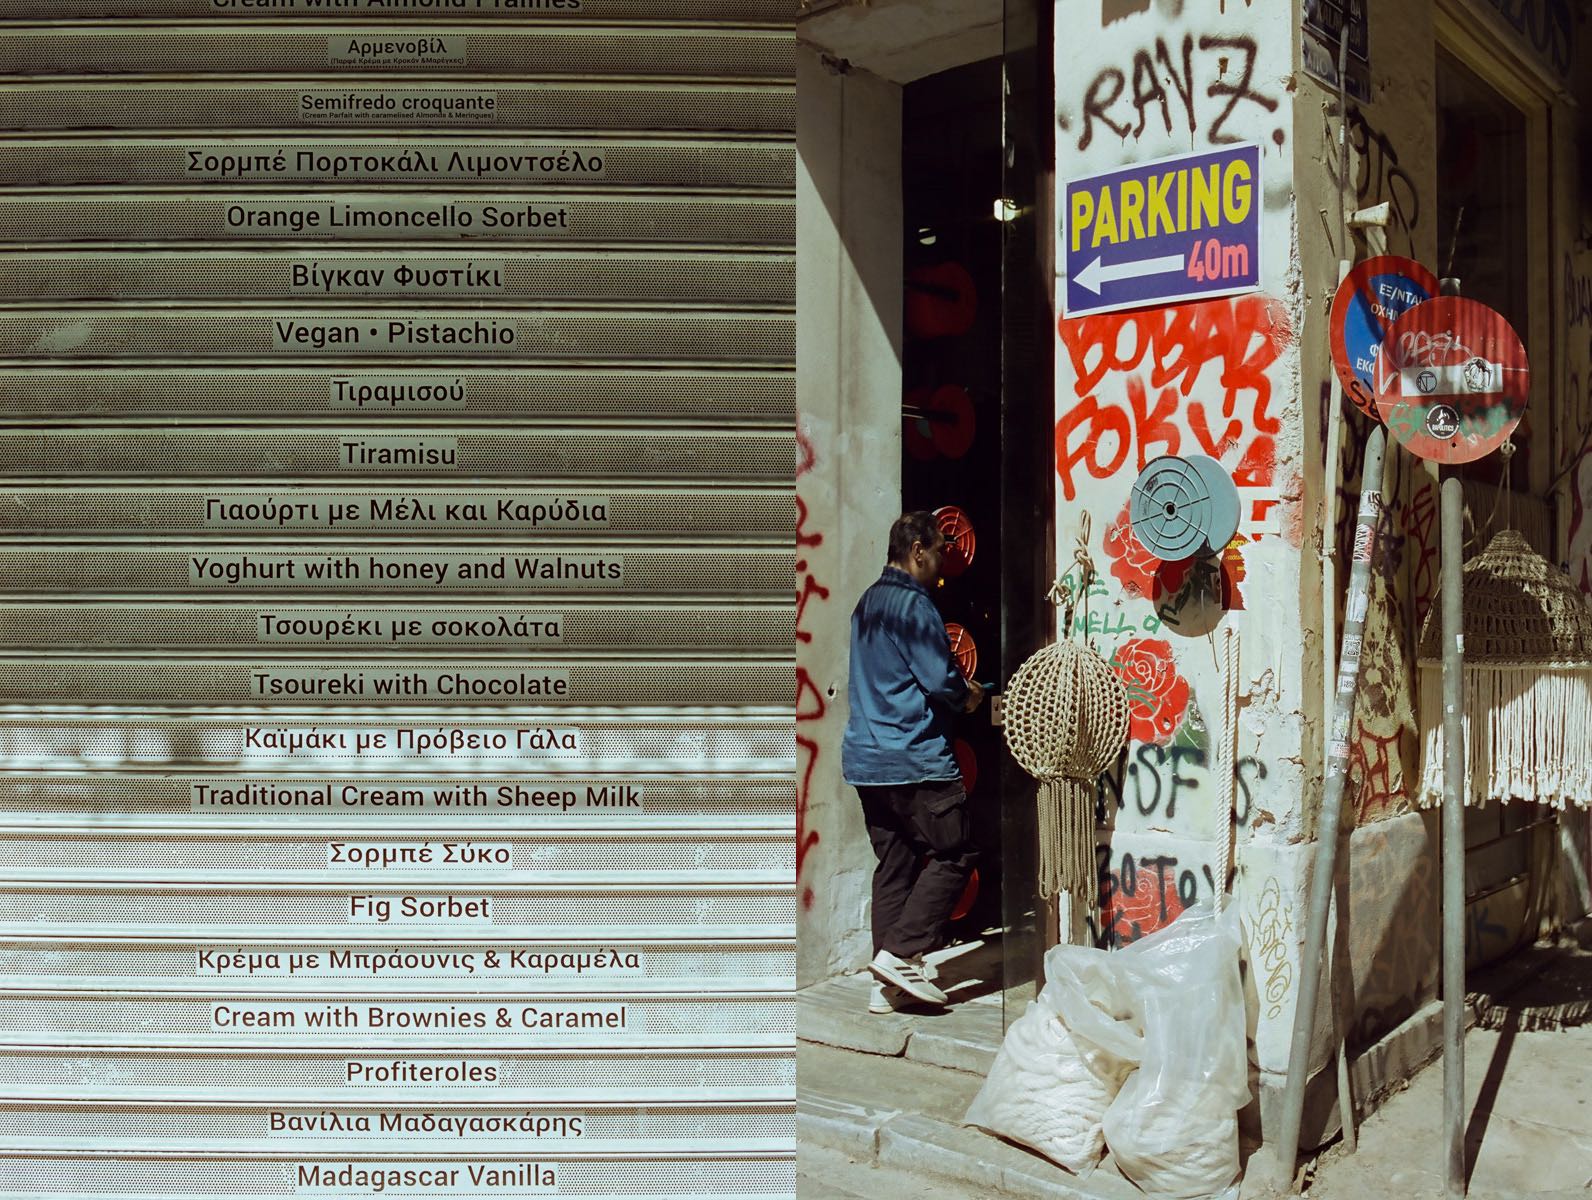 Cream with Almond Pralines
Αρμενοβίλ
(Παρφέ Κρέμα με Κροκάν &Μαρέγκες)
Semifredo croquante
(Cream Parfait with caramelised Almonds & Meringues)
Σορμπέ Πορτοκάλι Λιμοντσέλο
Orange Limoncello Sorbet
Βίγκαν Φυστίκι
Vegan • Pistachio
Τιραμισού
Tiramisu
Γιαούρτι με Μέλι και Καρύδια
Yoghurt with honey and Walnuts
Τσουρέκι με σοκολάτα
Tsoureki with Chocolate
Καϊμάκι με Πρόβειο Γάλα
Traditional Cream with Sheep Milk
Σορμπέ Σύκο
Fig Sorbet
Κρέμα με Μπράουνις & Καραμέλα
Cream with Brownies & Caramel
Profiteroles
Βανίλια Μαδαγασκάρης
Madagascar Vanilla
RAVZ
PARKING
40m
BOBAR
FOK